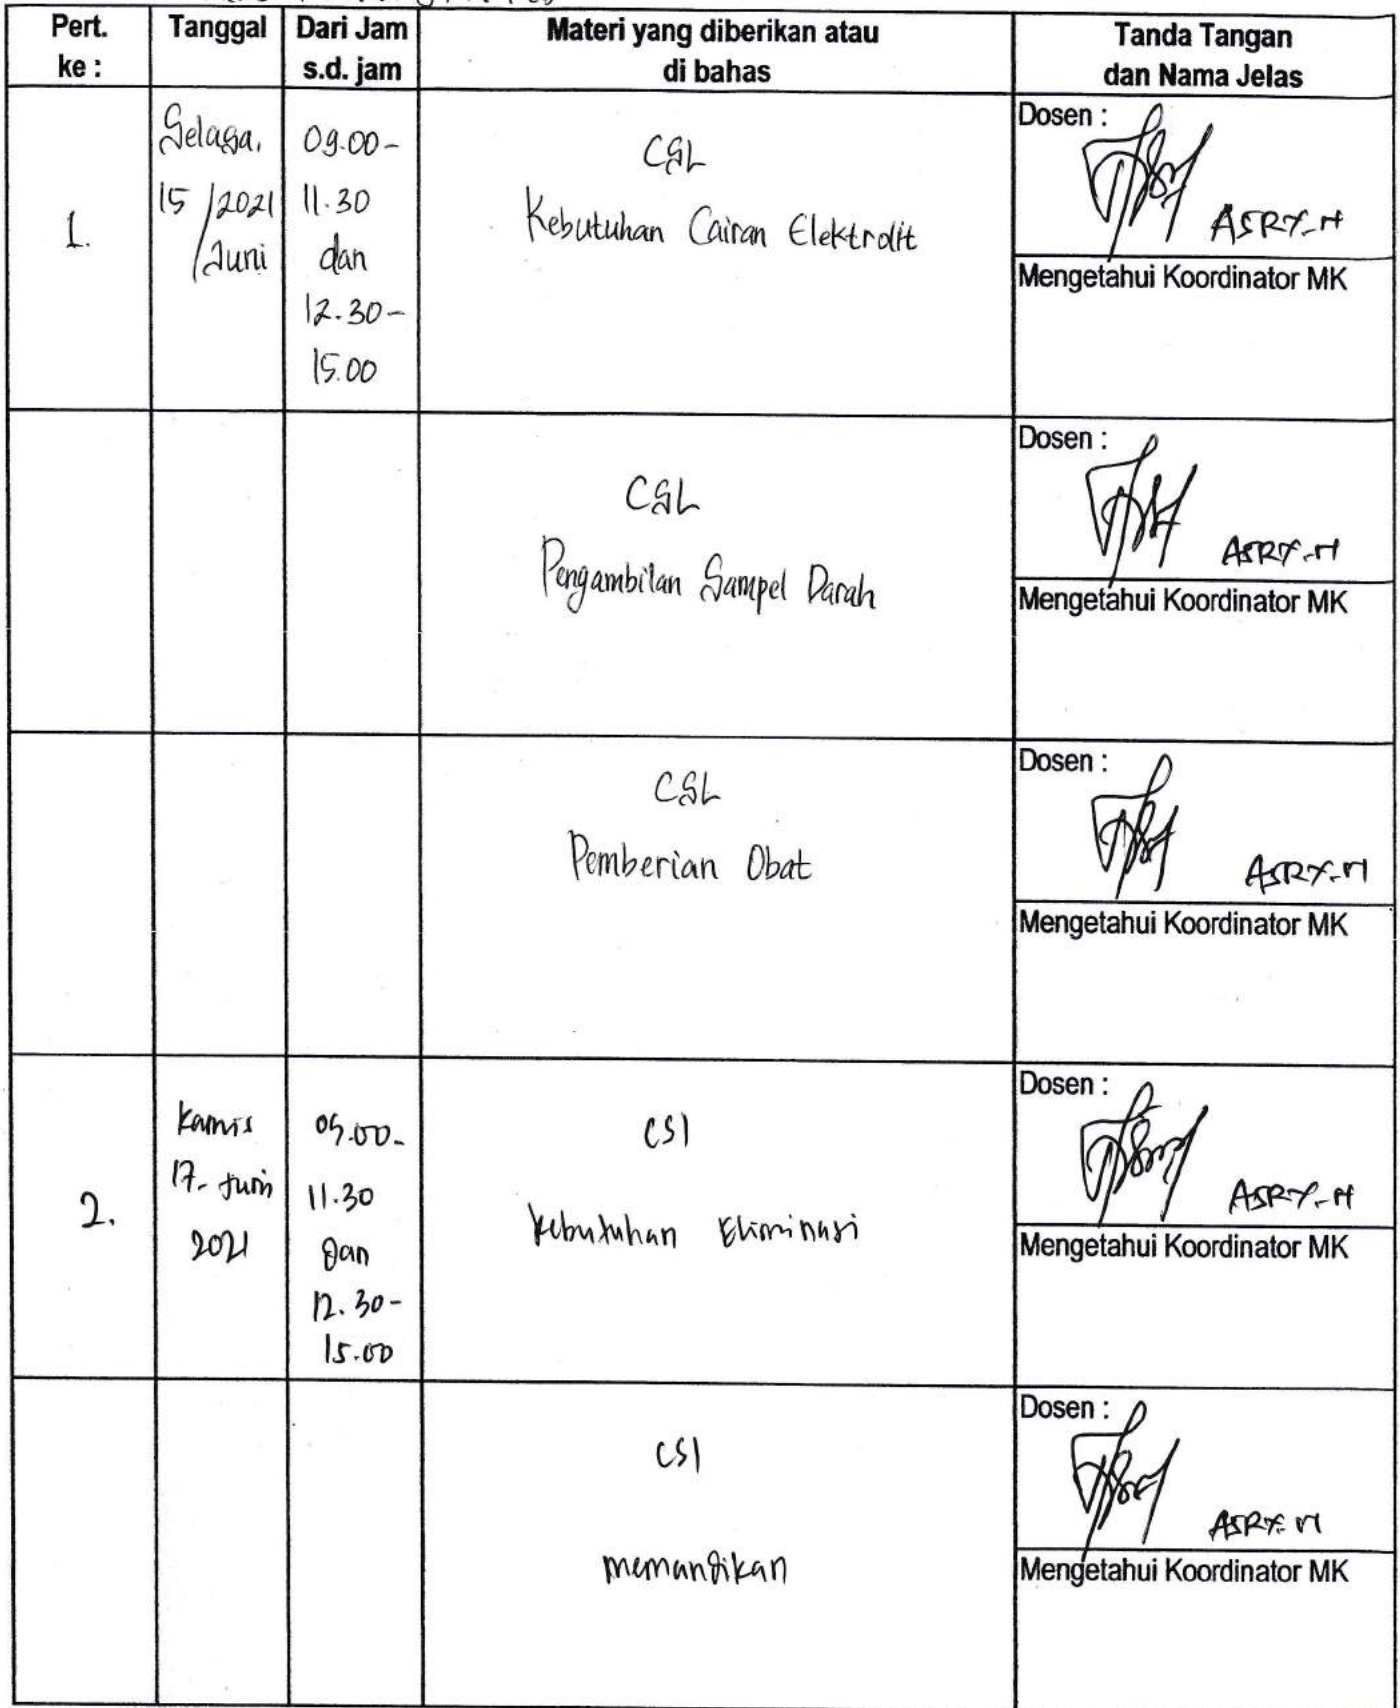 Pert.
ke :
Tanggal
Dari Jam
s.d. jam
Materi yang diberikan atau
di bahas
Tanda Tangan
dan Nama Jelas
1.
Selasa,
15 /2021
/Juni
09.00-
11.30
dan
12.30-
15.00
CSL
Kebutuhan Cairan Elektrolit
Dosen :
ASRY-M
Mengetahui Koordinator MK
CSL
Pengambilan Sampel Darah
Dosen :
ASRY-M
Mengetahui Koordinator MK
CSL
Pemberian Obat
Dosen :
ASRY-M
Mengetahui Koordinator MK
2.
Kamis
17- Juni
2021
09.00-
11.30
dan
12.30-
15.00
CSl
kebutuhan Eliminasi
Dosen :
ASRY-M
Mengetahui Koordinator MK
CSl
memandikan
Dosen :
ASRY-M
Mengetahui Koordinator MK